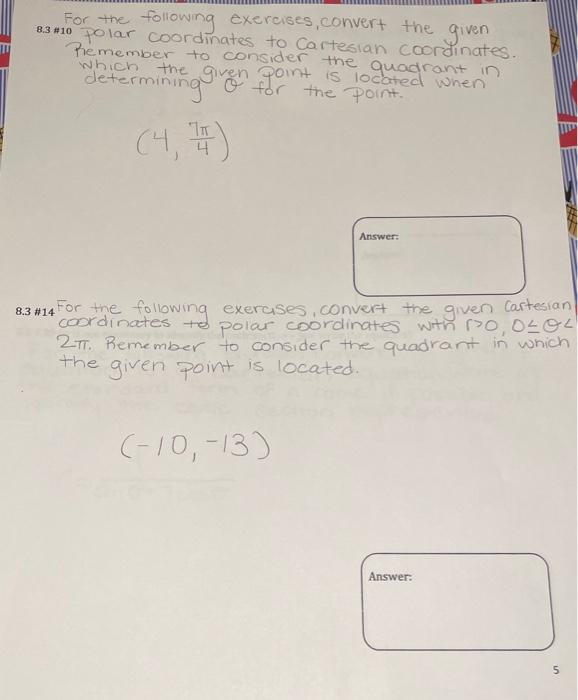 For the following exercises, convert the given
8.3 #10 polar coordinates to Cartesian coordinates.
Remember to consider the quadrant in
which the given point is located when
determining θ for the point.
(4, 7π/4)
Answer:
8.3 #14 For the following exercises, convert the given Cartesian
coordinates to polar coordinates with r>0, 0≤θ<
2π. Remember to consider the quadrant in which
the given point is located.
(-10, -13)
Answer:
5